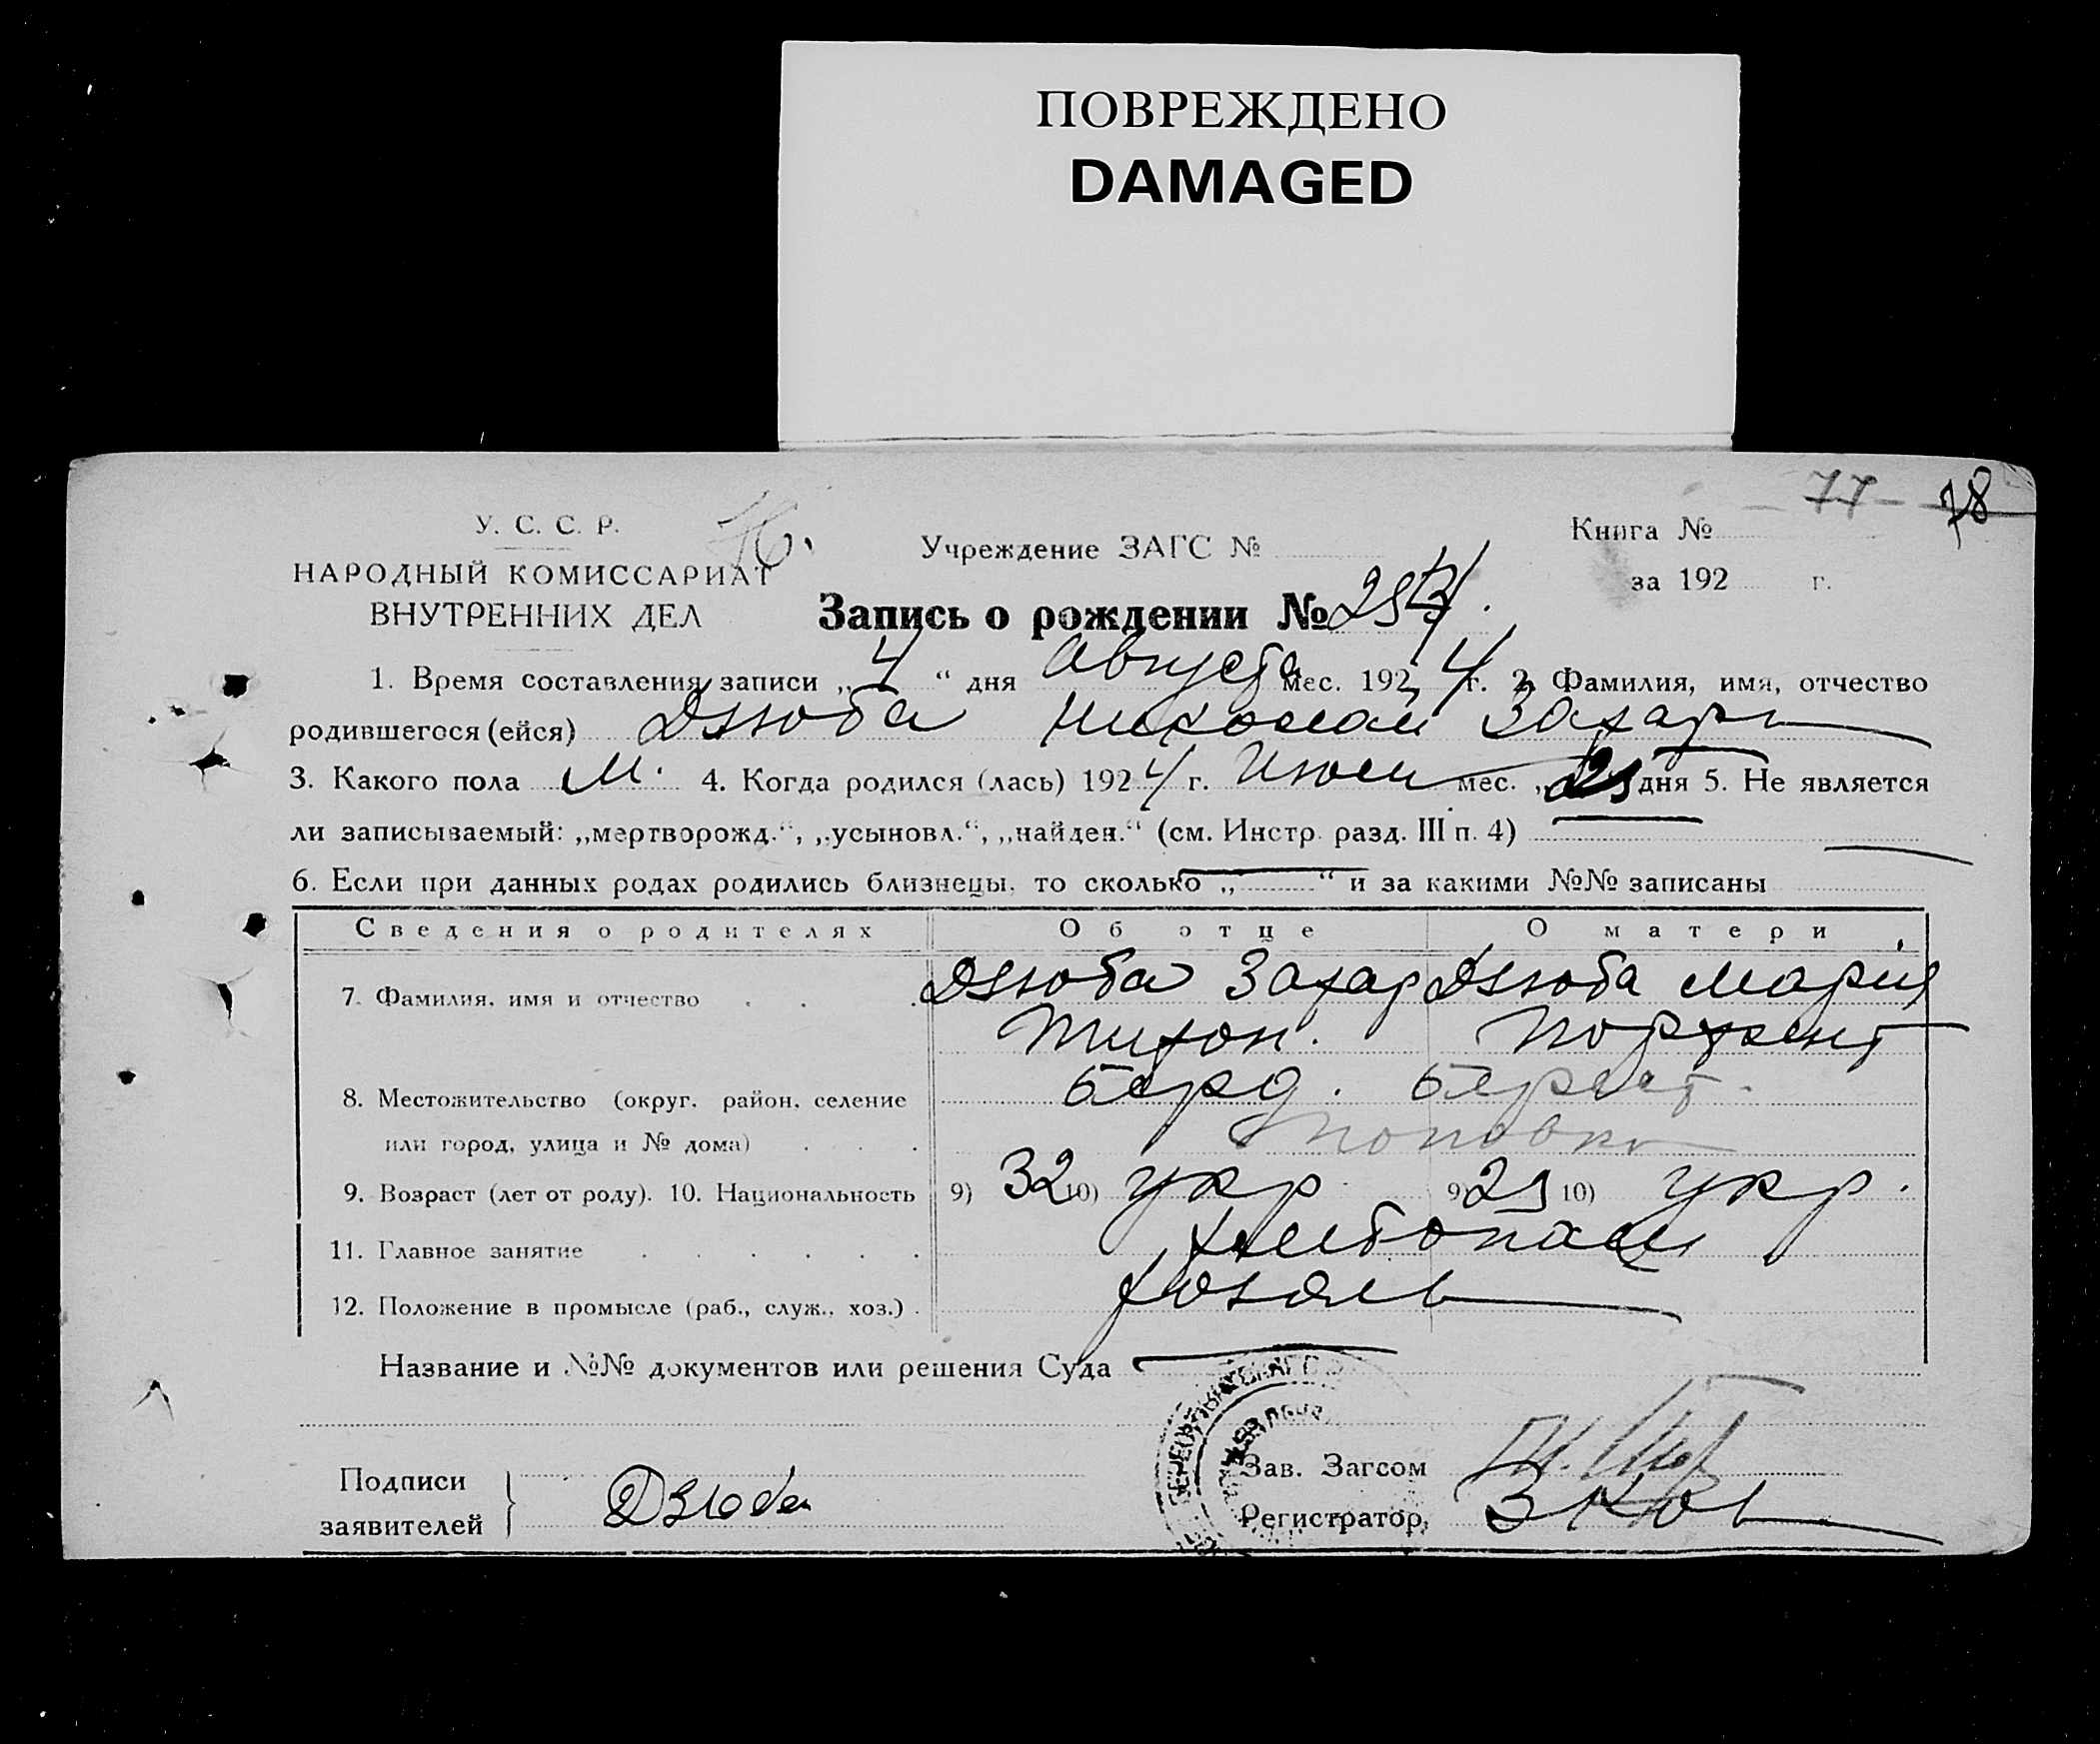 ПОВРЕЖДЕНО
DAMAGED
77 78
У. С. С. Р.
НАРОДНЫЙ КОМИССАРИАТ
ВНУТРЕННИХ ДЕЛ
Н.
Учреждение ЗАГС №
Книга №
за 192 г.
Запись о рождении №
1. Время составления записи „ 4 “ дня Августа мес. 192 4 г. 2. Фамилия, имя, отчество
родившегося (ейся) Дзюба Николай Захар
3. Какого пола М. 4. Когда родился (лась) 192 4 г. Июля мес. „ 29 дня 5. Не является
ли записываемый: „мертворожд.“, „усыновл.“, „найден.“ (см. Инстр. разд. III п. 4)
6. Если при данных родах родились близнецы, то сколько „ “ и за какими №№ записаны
Сведения о родителях Об отце О матери
7. Фамилия, имя и отчество Дзюба Захар Дзюба Мария
Тихон.
8. Местожительство (округ, район, селение Берд. Берест.
или город, улица и № дома)
9. Возраст (лет от роду). 10. Национальность 9) 32 10) укр 9) 29 10) укр.
11. Главное занятие хлебопаш
12. Положение в промысле (раб., служ., хоз.) хозяев
Название и №№ документов или решения Суда
Подписи
заявителей Дзюба
Зав. Загсом
Регистратор